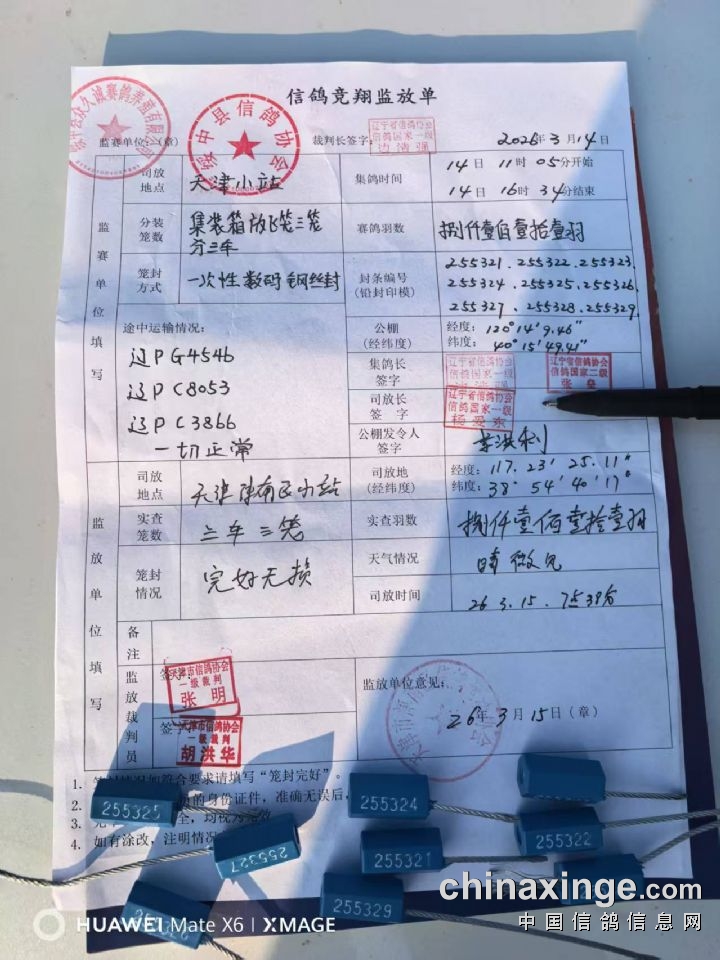 信鸽竞翔监放单
监赛单位:(章) 裁判长签字: 2026年3月14日
绥中县信鸽协会
辽宁省信鸽协会
信鸽国家一级
监赛单位填写
司放地点 天津小站 集鸽时间 14日11时05分开始
14日16时34分结束
分装笼数 集装箱放飞笼三笼 分三车 赛鸽羽数 捌仟壹佰壹拾壹羽
笼封方式 一次性数码钢丝封 封条编号(铅封印模) 255321.255322.255323.
255324.255325.255326
255327.255328.255329.
途中运输情况: 公棚(经纬度) 经度:120°14′9.46″
纬度:40°15′49.41″
辽PG4546
辽PC8053
辽PC3866
一切正常
集鸽长签字 辽宁省信鸽协会 信鸽国家一级
辽宁省信鸽协会
信鸽国家二级
司放长签字 辽宁省信鸽协会
信鸽国家一级
杨爱东
公棚发令人签字 李洪利
监放单位填写
司放地点 天津津南区小站 司放地(经纬度) 经度:117.23′25.11″
纬度:38°54′40.17″
实查笼数 三车三笼 实查羽数 捌仟壹佰壹拾壹羽
笼封情况 完好无损 天气情况 晴 微风
司放时间 26.3.15.7点39分
备注
监放裁判员 签字 天津市信鸽协会
一级裁判
张明
签字 天津市信鸽协会
一级裁判
胡洪华
监放单位意见:
26年3月15日(章)
1. 符合要求请填写“笼封完好”。
2. 的身份证件,准确无误后,
3.
4. 如有涂改,注明情况
255325
255327
255324
255321
255322
255329
HUAWEI Mate X6 | XMAGE
chinaxinge.com
中国信鸽信息网